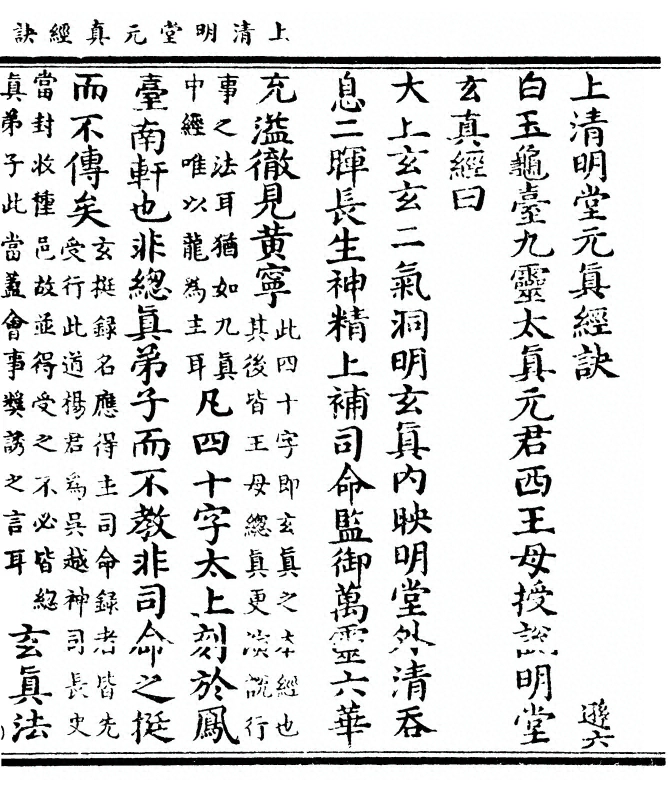 上清明堂元真經訣
上清明堂元眞經訣
遜六
白玉龜臺九靈太眞元君西王母授說明堂
玄真經曰
大上玄玄二氣洞明玄眞內映明堂外清吞
息二暉長生神精上補司命監御萬靈六華
充溢徹見黃寧
此四十字即玄眞之本經也
其後皆王母總眞更演說行
事之法耳猶如九眞
中經唯以龍為主耳
凡四十字太上刻於鳳
臺南軒也非總眞弟子而不教非司命之挺
而不傳矣
玄挺録名應得主司命録者皆先
受行此道楊君為吳越神司長史
當封收種邑故並得受之不必皆總
眞弟子此當蓋會事獎誘之言耳
玄眞法